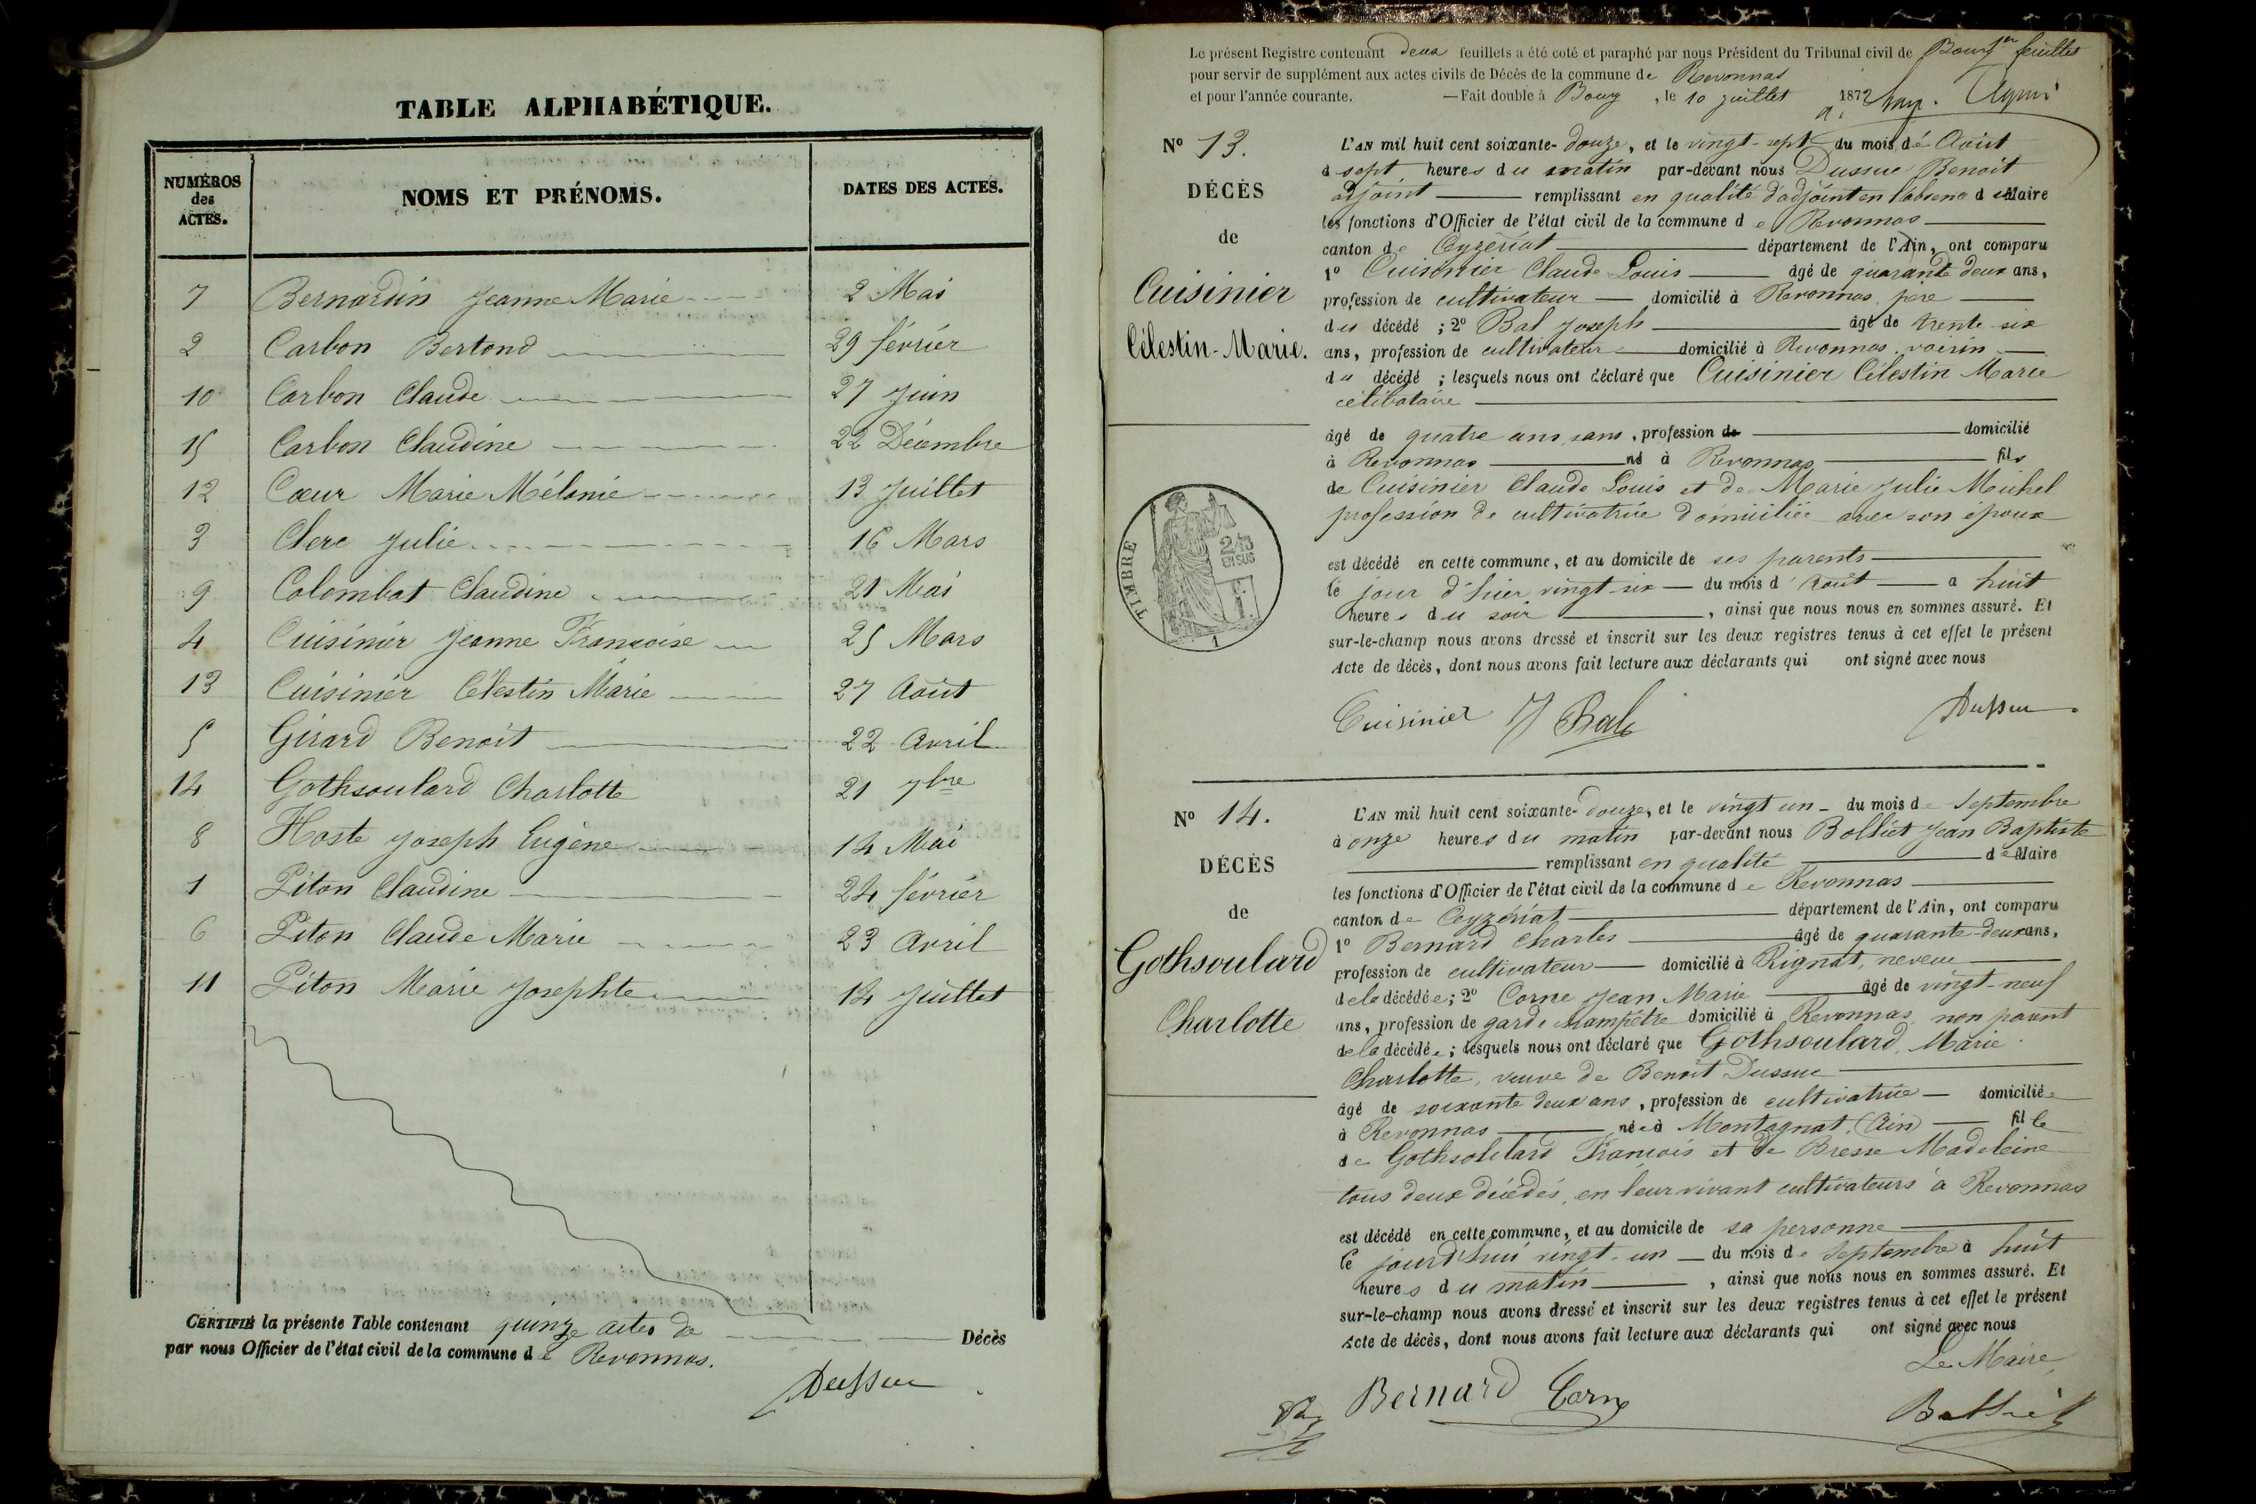 TABLE ALPHABÉTIQUE.
NUMÉROS des ACTES.
NOMS ET PRÉNOMS.
DATES DES ACTES.
7 Bernardin Jeanne Marie 2 Mai
2 Carbon Bertond 29 février
10 Carbon Claude 27 Juin
15 Carbon Claudine 22 Décembre
12 Cœur Marie Mélanie 13 Juillet
3 Clerc Julie 16 Mars
9 Colombat Claudine 21 Mai
4 Cuisinier Jeanne Françoise 25 Mars
13 Cuisinier Célestin Marie 27 Août
5 Girard Benoit 22 Avril
14 Gothsoulard Charlotte 21 7bre
8 Hoste Joseph Eugène 14 Mai
1 Piton Claudine 24 février
6 Piton Claude Marie 23 Avril
11 Piton Marie Josephte 14 Juillet
CERTIFIÉ la présente Table contenant quinze actes de Décès
par nous Officier de l'état civil de la commune de Revonnas.
Dussuc
Le présent Registre contenant deux feuillets a été coté et paraphé par nous Président du Tribunal civil de Bourg 1er feuillet
pour servir de supplément aux actes civils de Décès de la commune de Revonnas
et pour l'année courante. — Fait double à Bourg, le 10 juillet 1872
No 13.
DÉCÈS
de
Cuisinier
Célestin-Marie.
L'AN mil huit cent soixante-douze, et le vingt-sept du mois de Août
à sept heures du matin par-devant nous Dussuc Benoit
adjoint remplissant en qualité d'adjoint en l'absence du Maire
les fonctions d'Officier de l'état civil de la commune de Revonnas
canton de Ceyzériat département de l'Ain, ont comparu
1o Cuisinier Claude Louis âgé de quarante deux ans,
profession de cultivateur domicilié à Revonnas, père
du décédé ; 2o Bal Joseph âgé de trente six
ans, profession de cultivateur domicilié à Revonnas, voisin
du décédé ; lesquels nous ont déclaré que Cuisinier Célestin Marie
célibataire
âgé de quatre ans, sans, profession de domicilié
à Revonnas né à Revonnas fils
de Cuisinier Claude Louis et de Marie Julie Michel
profession de cultivatrice domiciliée avec son époux
est décédé en cette commune, et au domicile de ses parents
le jour d'hier vingt-six du mois d'Août à huit
heures du soir, ainsi que nous nous en sommes assuré. Et
sur-le-champ nous avons dressé et inscrit sur les deux registres tenus à cet effet le présent
Acte de décès, dont nous avons fait lecture aux déclarants qui ont signé avec nous
TIMBRE
2/10 EN SUS
1
Cuisinier J Bal Dussuc
No 14.
DÉCÈS
de
Gothsoulard
Charlotte
L'AN mil huit cent soixante-douze, et le vingt un du mois de Septembre
à onze heures du matin par-devant nous Bolliet Jean Baptiste
remplissant en qualité de Maire
les fonctions d'Officier de l'état civil de la commune de Revonnas
canton de Ceyzériat département de l'Ain, ont comparu
1o Bernard Charles âgé de quarante-deux ans,
profession de cultivateur domicilié à Rignat, neveu
de la décédée ; 2o Corne Jean Marie âgé de vingt-neuf
ans, profession de garde champêtre domicilié à Revonnas non parent
de la décédée ; lesquels nous ont déclaré que Gothsoulard, Marie
Charlotte, veuve de Benoit Dussuc
âgé de soixante deux ans, profession de cultivatrice domiciliée
à Revonnas née à Montagnat, (Ain) fille
de Gothsoulard François et de Bresse Madeleine
tous deux décédés, en leur vivant cultivateurs à Revonnas
est décédé en cette commune, et au domicile de sa personne
le jourd'hui vingt-un du mois de Septembre à huit
heures du matin, ainsi que nous nous en sommes assuré. Et
sur-le-champ nous avons dressé et inscrit sur les deux registres tenus à cet effet le présent
Acte de décès, dont nous avons fait lecture aux déclarants qui ont signé avec nous
Le Maire,
Bernard Corne Bolliet